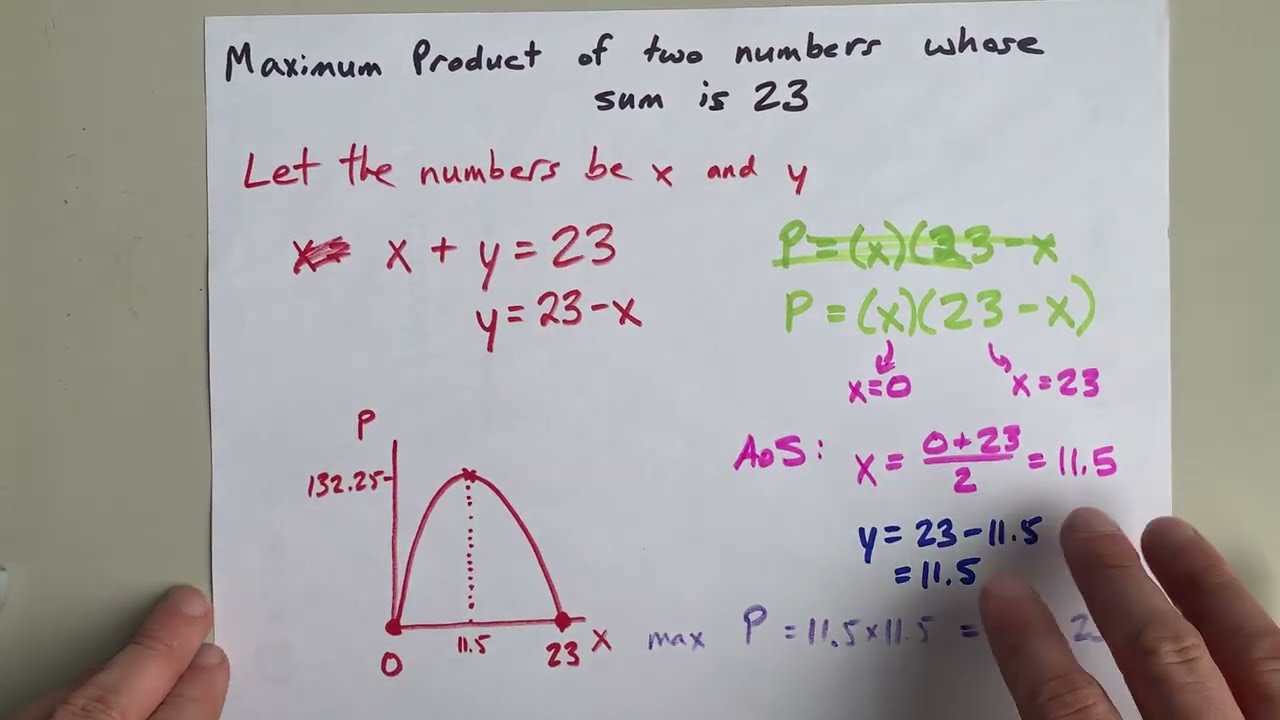 Maximum Product of two numbers whose
sum is 23
Let the numbers be x and y
x + y = 23
y = 23 - x
P = (x)(23 - x
P = (x)(23 - x)
x = 0
x = 23
AoS: x = (0 + 23)/2 = 11.5
y = 23 - 11.5
= 11.5
max P = 11.5 x 11.5 =
P
132.25
0
11.5
23
x